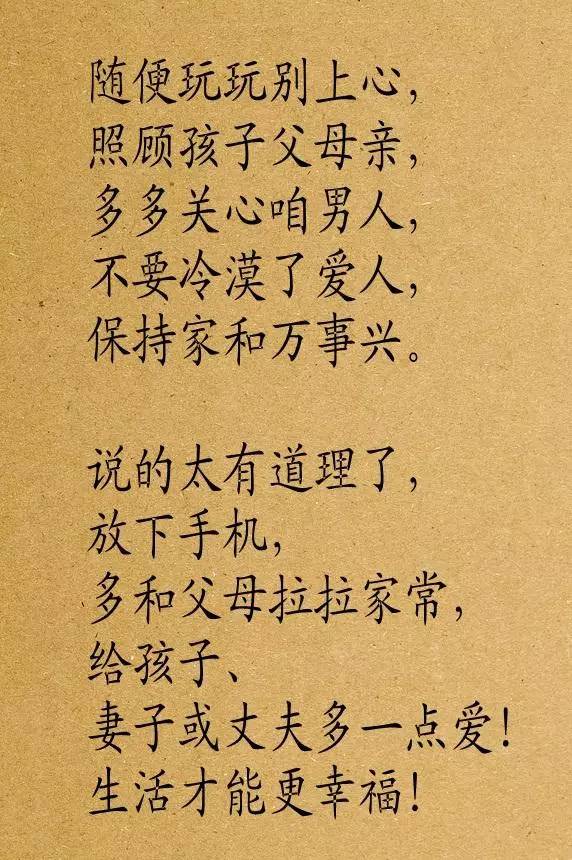 随便玩玩别上心，
照顾孩子父母亲，
多多关心咱男人，
不要冷漠了爱人，
保持家和万事兴。
说的太有道理了，
放下手机，
多和父母拉拉家常，
给孩子、
妻子或丈夫多一点爱！
生活才能更幸福！